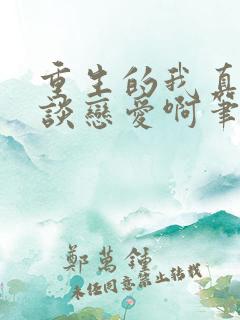 重生的我真
談戀愛啊筆
鄭萬鍾
未經同意禁止轉載